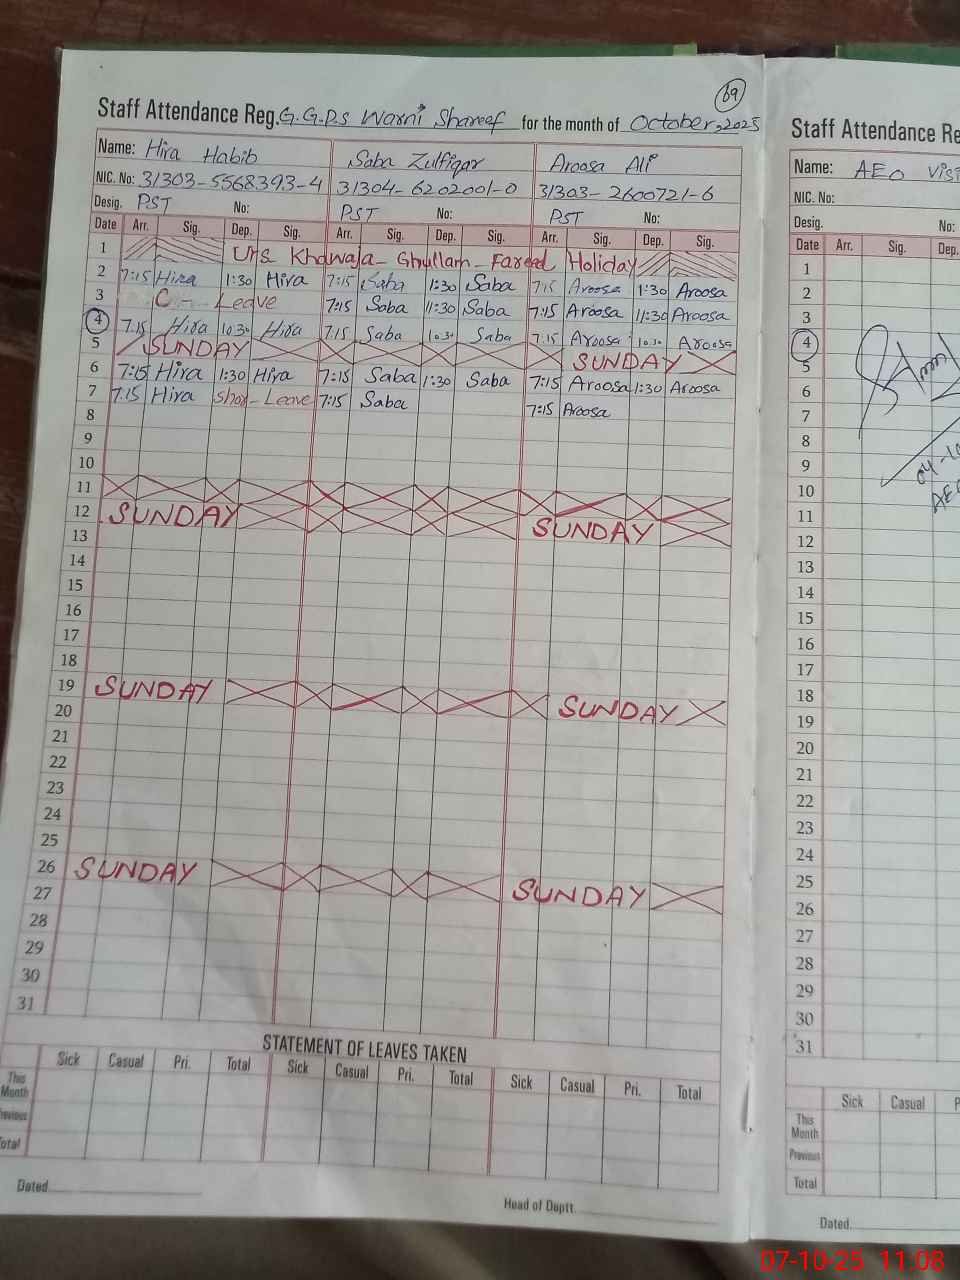 69
Staff Attendance Reg. G.G.P.S Warni Shareef for the month of October, 2025
Name: Hira Habib Saba Zulfiqar Aroosa Ali
NIC. No: 31303-5568393-4 31304-6202001-0 31303-2600721-6
Desig. PST No: PST No: PST No:
Date Arr. Sig. Dep. Sig. Arr. Sig. Dep. Sig. Arr. Sig. Dep. Sig.
1 Urs Khawaja Ghullam Fareed Holiday
2 7:15 Hira 1:30 Hira 7:15 Saba 1:30 Saba 7:15 Aroosa 1:30 Aroosa
3 C - Leave 7:15 Saba 11:30 Saba 7:15 Aroosa 11:30 Aroosa
4 7:15 Hira 10:30 Hira 7:15 Saba 10:30 Saba 7:15 Aroosa 10:30 Aroosa
5 SUNDAY SUNDAY
6 7:15 Hira 1:30 Hira 7:15 Saba 1:30 Saba 7:15 Aroosa 1:30 Aroosa
7 7:15 Hira Leave 7:15 Saba 7:15 Aroosa
8
9
10
11
12 SUNDAY SUNDAY
13
14
15
16
17
18
19 SUNDAY SUNDAY
20
21
22
23
24
25
26 SUNDAY SUNDAY
27
28
29
30
31
STATEMENT OF LEAVES TAKEN
Sick Casual Pri. Total Sick Casual Pri. Total Sick Casual Pri. Total
This Month
Previous
Total
Dated
Head of Deptt.
Staff Attendance Re
Name: AEO Visi
NIC. No:
Desig. No:
Date Arr. Sig. Dep.
1
2
3
4
5
6
7
8
9
10
11
12
13
14
15
16
17
18
19
20
21
22
23
24
25
26
27
28
29
30
31
04-10
AEO
Sick Casual P
This Month
Previous
Total
Dated
07-10-25 11:08